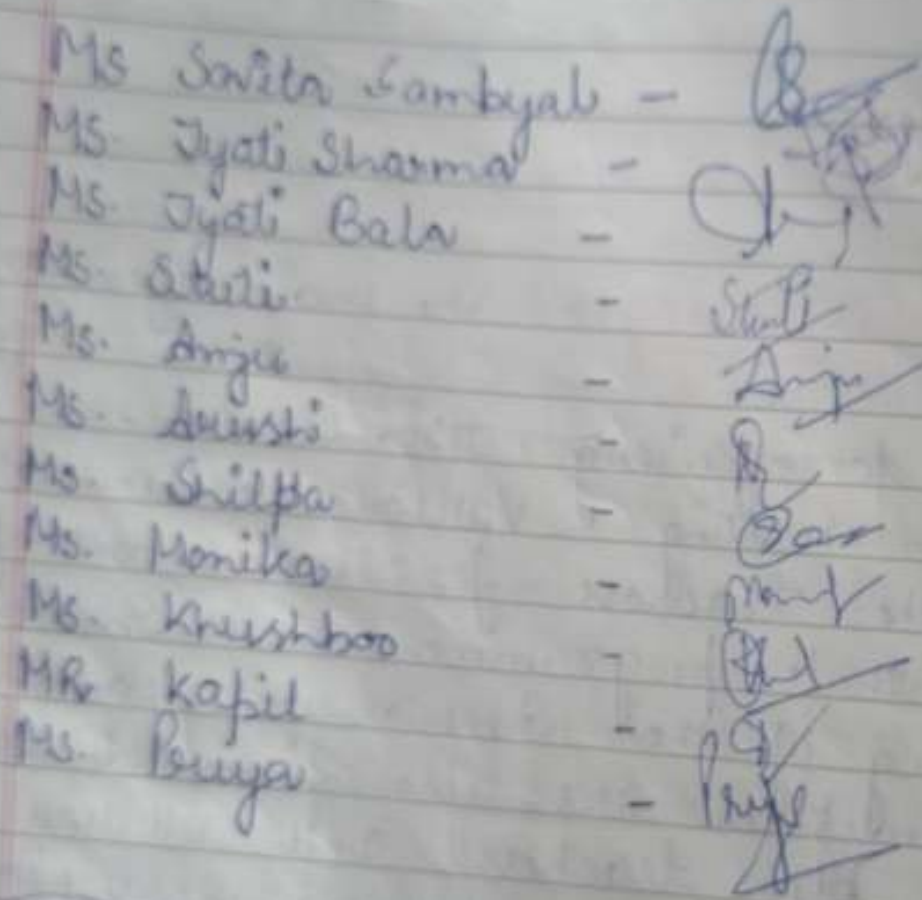 Ms Savita Sambyal -
Ms. Jyoti Sharma -
Ms. Jyoti Bala -
Ms. Stuti -
Ms. Anju - Anju
Ms. Arushi -
Ms. Shilpa -
Ms. Monika -
Ms. Khushboo -
MR. Kapil -
Ms. Pruya - Priya